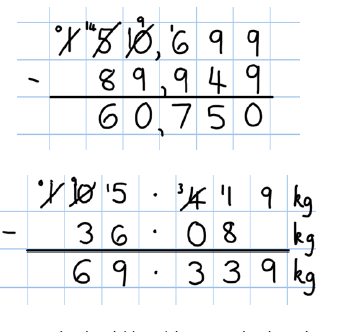 150,699
- 89,949
60,750
105.419 kg
- 36.08 kg
69.339 kg